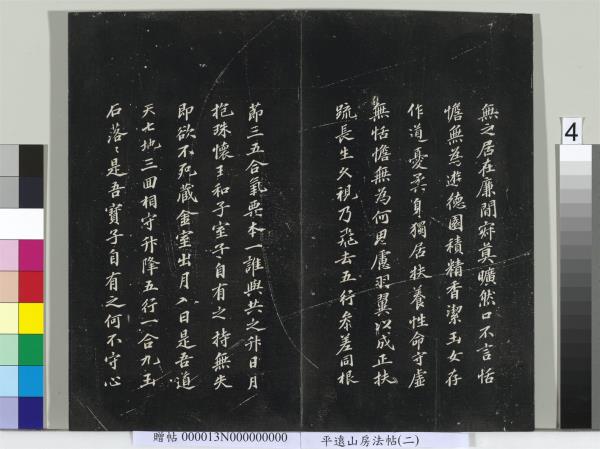 無之居在廉間寂莫曠然口不言恬
惔無為遊德園積精香潔玉女存
作道憂柔身獨居扶養性命守虛
無恬惔無為何思慮羽翼以成正扶
疏長生久視乃飛去五行參差同根
節三五合氣要本一誰與共之升日月
抱珠懷玉和子室子自有之持無失
即欲不死藏金室出月入日是吾道
天七地三回相守升降五行一合九玉
石落〻是吾寶子自有之何不守心
4
贈帖 000013N000000000
平遠山房法帖(二)